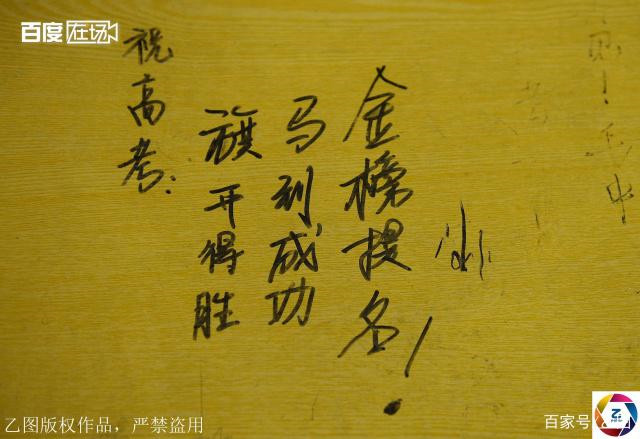 百度在场
祝高考:
旗开得胜
马到成功
金榜提名!
乙图版权作品，严禁盗用
百家号